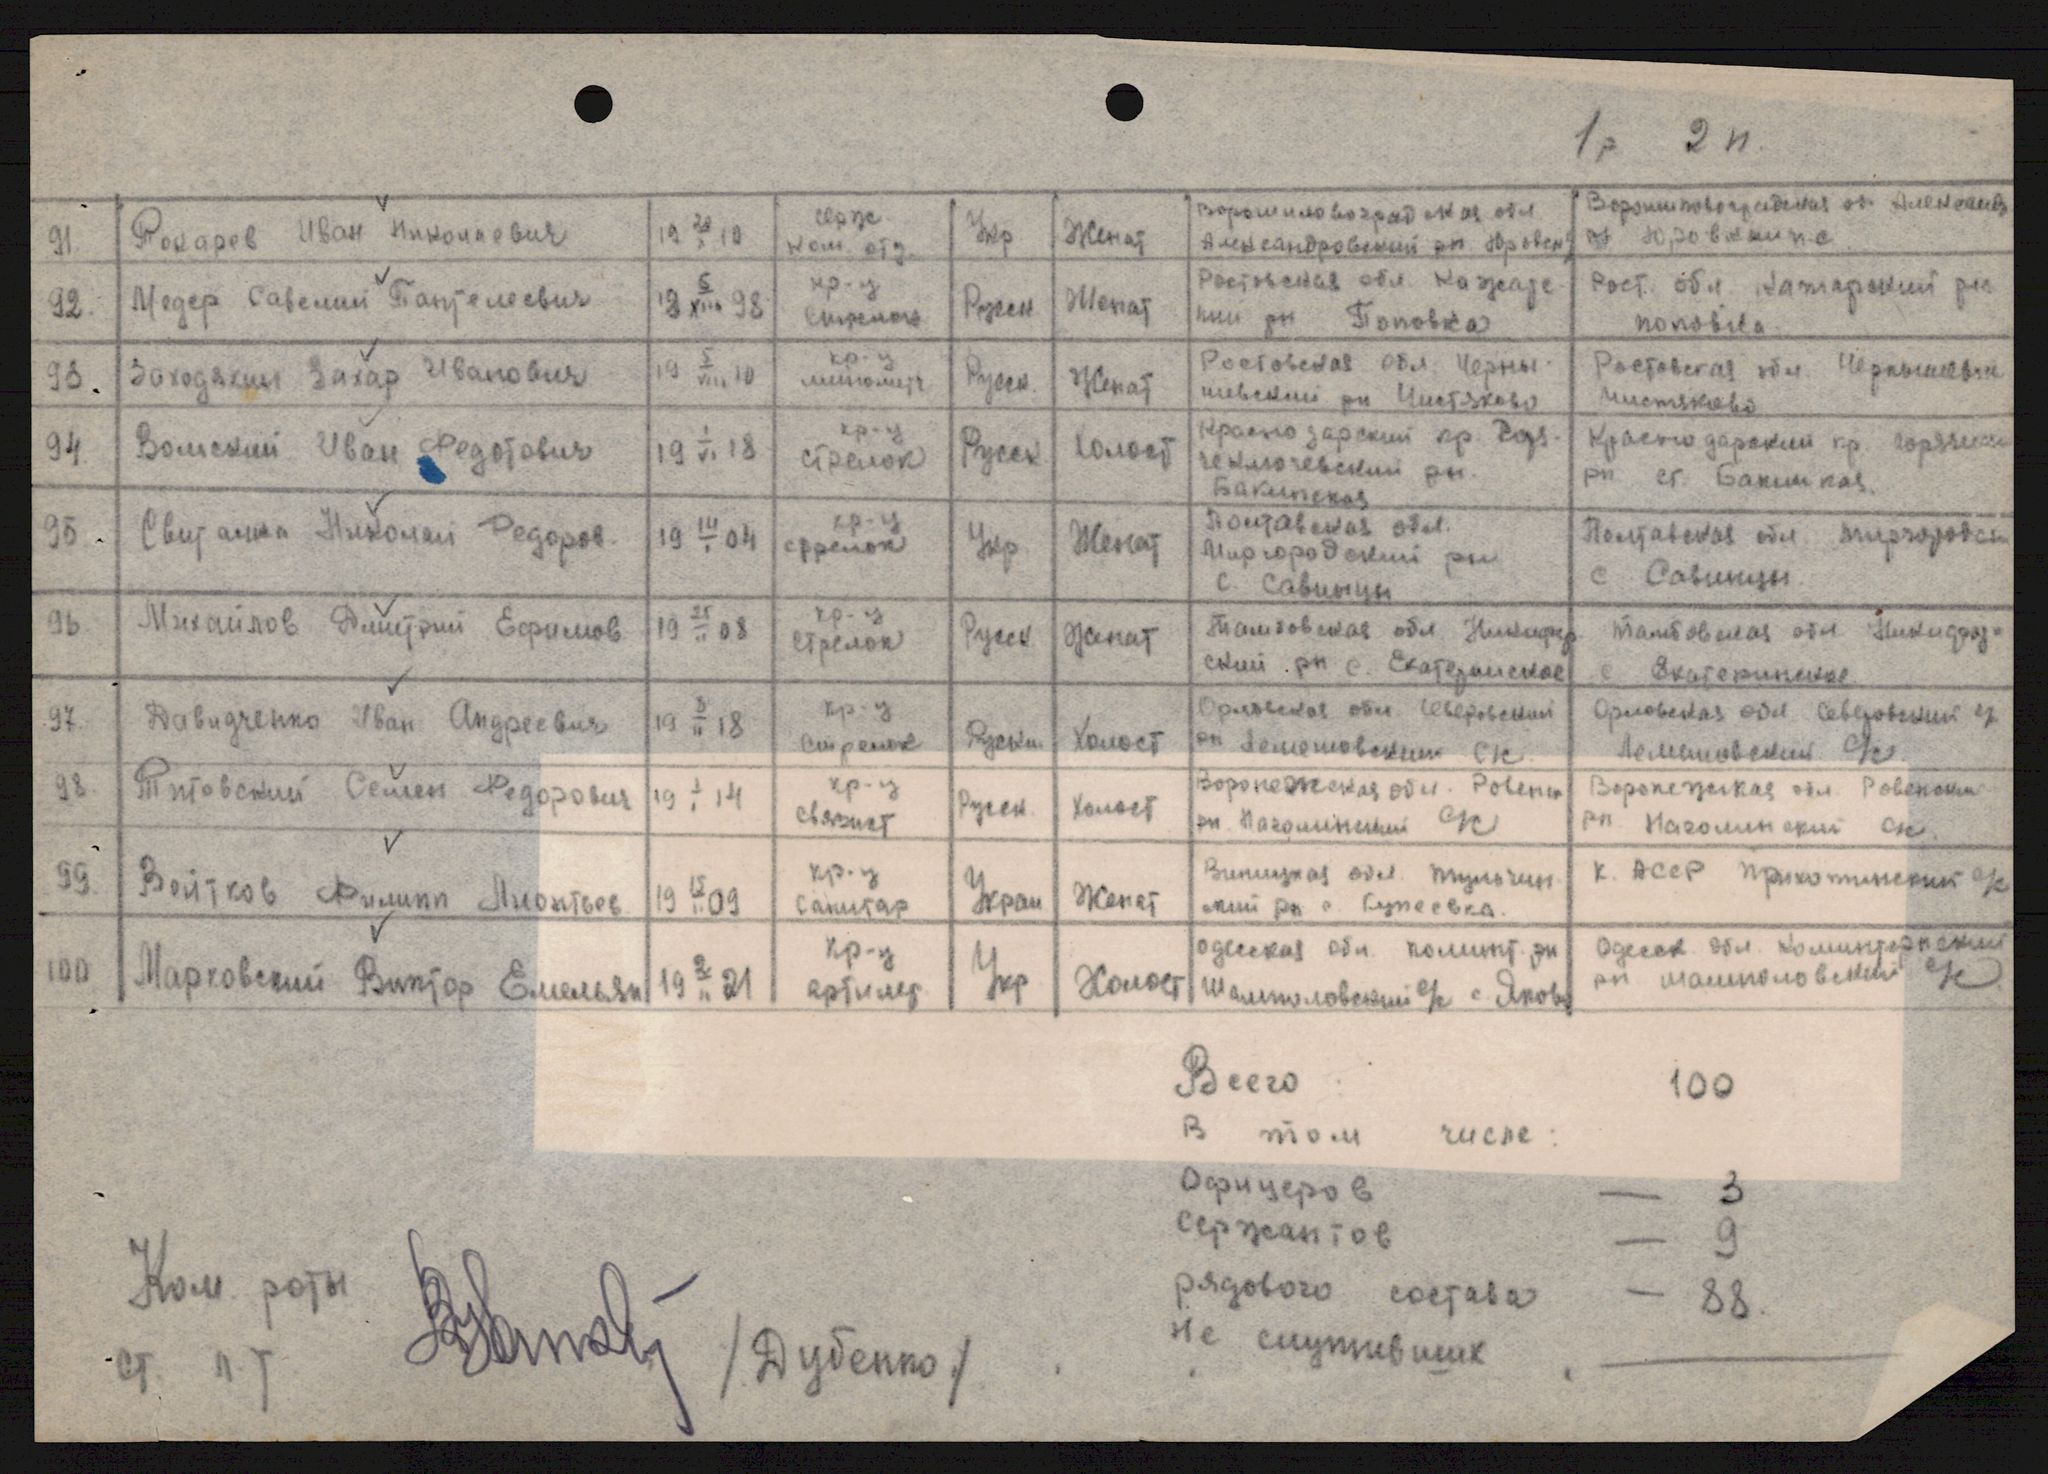 1р 2 п.
91. Токарев Иван Николаевич 19 20/X 19 серж. ком. отд. Укр Женат Ворошиловоградская обл Александровский рн. Юровск Ворошиловоградская об. Александ
92. Медер Савелий Пантелеевич 19 6/XIII 98 кр-ц стрелок Русск Женат Ростовская обл. Кажарс кий рн Поповка Рост. обл. Кашарский рн поповка.
93. Заходякин Захар Иванович 19 5/VIII 10 кр-ц минометч Русск. Женат Ростовская обл. Черны- шевский рн Чистяково Ростовская обл. Чернышевск чистяково
94. Вольский Иван Федотович 19 1/VI 18 кр-ц стрелок Русск Холост Краснодарский кр. Горя- чеключевский рн. Бакинская Краснодарский кр. горячек рн ст. Бакинкая.
95. Свиталка Николай Федоров. 19 14/I 04 кр-ц стрелок Укр Женат Полтавская обл. Миргородский рн с. Савинцы Полтавская обл. миргородск с Савинцы.
96 Михайлов Дмитрий Ефимов 19 25/II 08 кр-ц стрелок Русск Женат Тамбовская обл. Никифор ский рн с. Екатеринское Тамбовская обл Никифор- с Екатеринское
97. Давидченко Иван Андреевич 19 3/II 18 кр-ц стрелок Русски Холост Орловская обл Севровский рн Лемешовский СК Орловская обл Севровский р Лемешовский с/с.
98. Титовский Семен Федорович 19 1/I 14 кр-ц связист Русск Холост Воронежская обл. Ровеньк рн. Наголинский с/с Воронежская обл. Ровенский рн Наголинский с/с.
99. Войтков Филипп Леонтьев 19 15/II 09 кр-ц санитар Украи Женат Виницкая обл. Тульчин- ский рн с. К. АССР Прихотинский с/с
100 Марковский Виктор Емельян 19 2/II 21 кр-ц артилер. Укр Холост одесская обл. коминт. рн Шамполовский с/с с Яковл Одесск обл. Коминтерновский рн шамполовский с/с
Всего 100
в том числе:
Офицеров — 3
Сержантов — 9
рядового состава — 88.
Не служивших —
Ком. роты
ст. л-т /Дубенко/